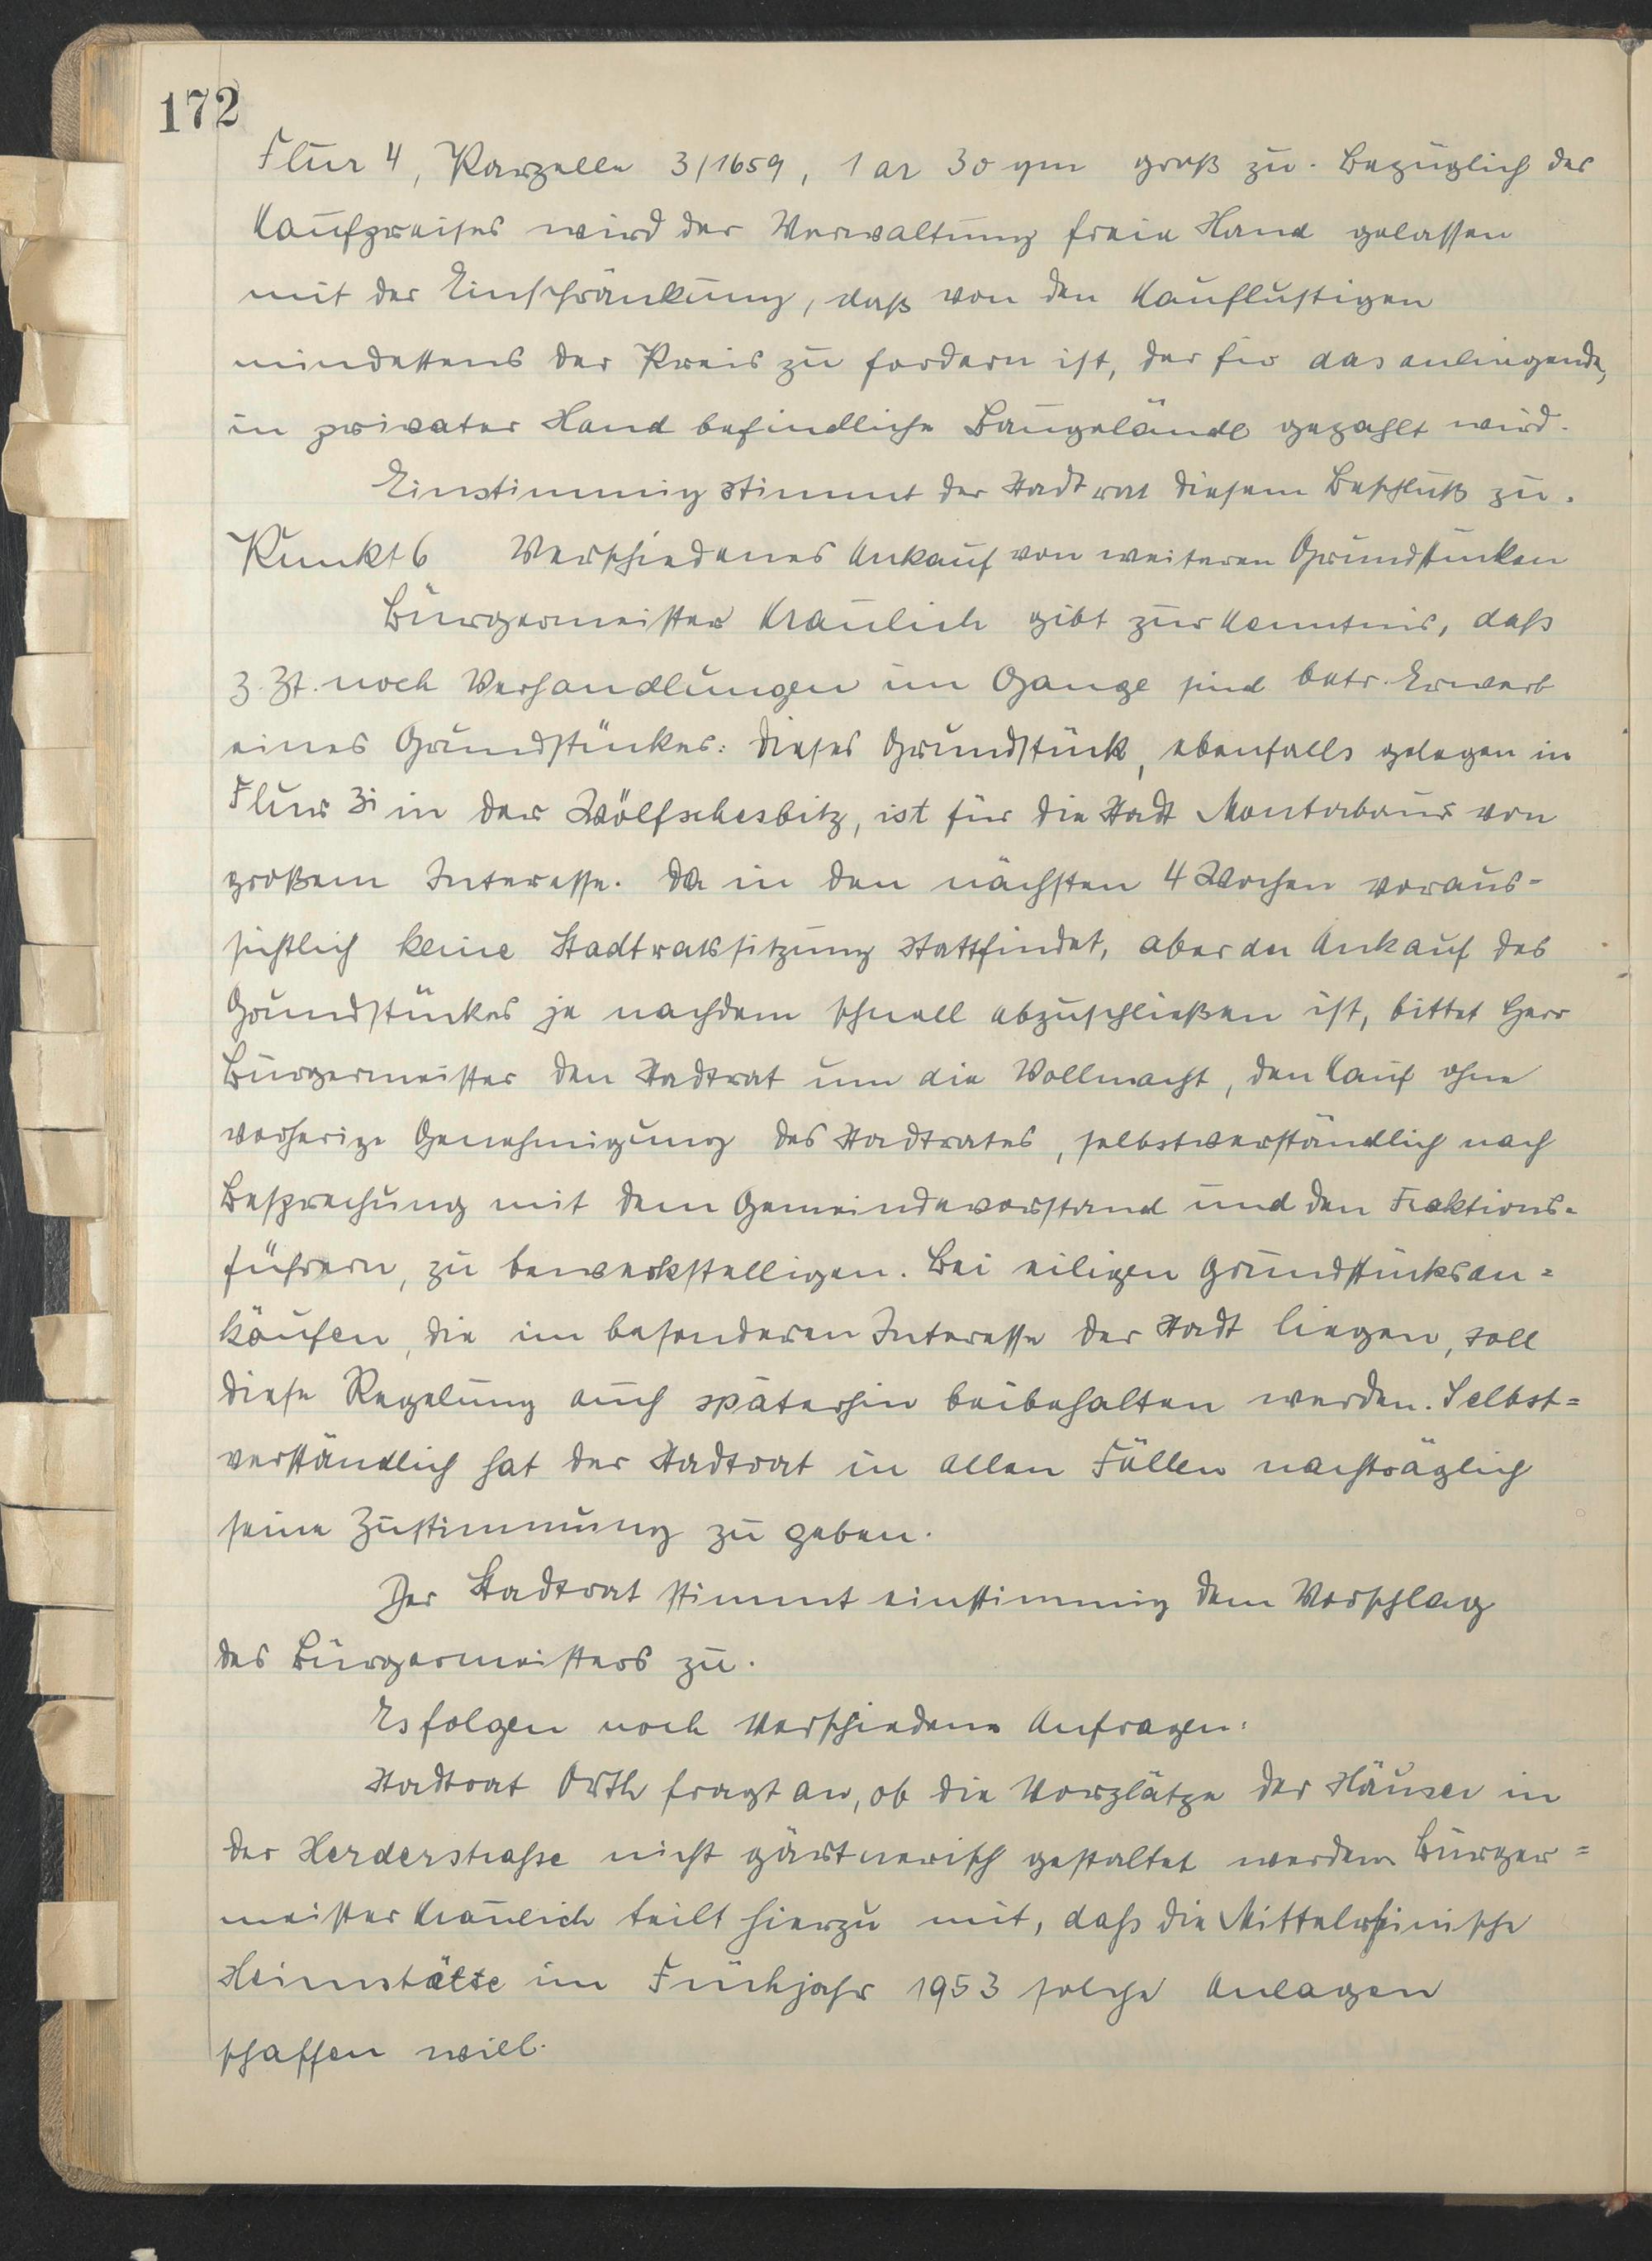 172
Flur 4, Parzelle 3/1659, 1 ar 30 qm groß zu. Bezüglich des
Kaufpreises wird der Verwaltung freie Hand gelassen
mit der Einschränkung, daß von den Kauflustigen
mindestens der Preis zu fordern ist, der für das anliegende,
in privater Hand befindliche Baugelände gezahlt wird.
Einstimmig stimmt der Stadtrat diesem Beschluß zu.
Punkt 6 Verschiedenes Ankauf von weiteren Grundstücken
Bürgermeister Kraulich gibt zur Kenntnis, daß
z. Zt. noch Verhandlungen im Gange sind betr. Erwerb
eines Grundstückes: Dieses Grundstück, ebenfalls gelegen in
Flur 31 in der Wölfschesbitz, ist für die Stadt Montabaur von
großem Interesse. Da in den nächsten 4 Wochen voraus-
sichtlich keine Stadtratssitzung stattfindet, aber der Ankauf des
Grundstückes je nachdem schnell abzuschließen ist, bittet Herr
Bürgermeister den Stadtrat um die Vollmacht, den Kauf ohne
vorherige Genehmigung des Stadtrates, selbstverständlich nach
Besprechung mit dem Gemeindevorstand und den Fraktions-
führern, zu bewerkstelligen. Bei eiligen Grundstücksan=
käufen, die im besonderen Interesse der Stadt liegen, soll
diese Regelung auch späterhin beibehalten werden. Selbst=
verständlich hat der Stadtrat in allen Fällen nachträglich
seine Zustimmung zu geben.
Der Stadtrat stimmt einstimmig dem Vorschlag
des Bürgermeisters zu.
Es folgen noch verschiedene Anfragen:
Stadtrat Orth fragt an, ob die Vorplätze der Häuser in
der Herderstraße nicht gärtnerisch gestaltet werden. Bürger=
meister Kraulich teilt hierzu mit, daß die Mittelrheinische
Heimstätte im Frühjahr 1953 solche Anlagen
schaffen will.